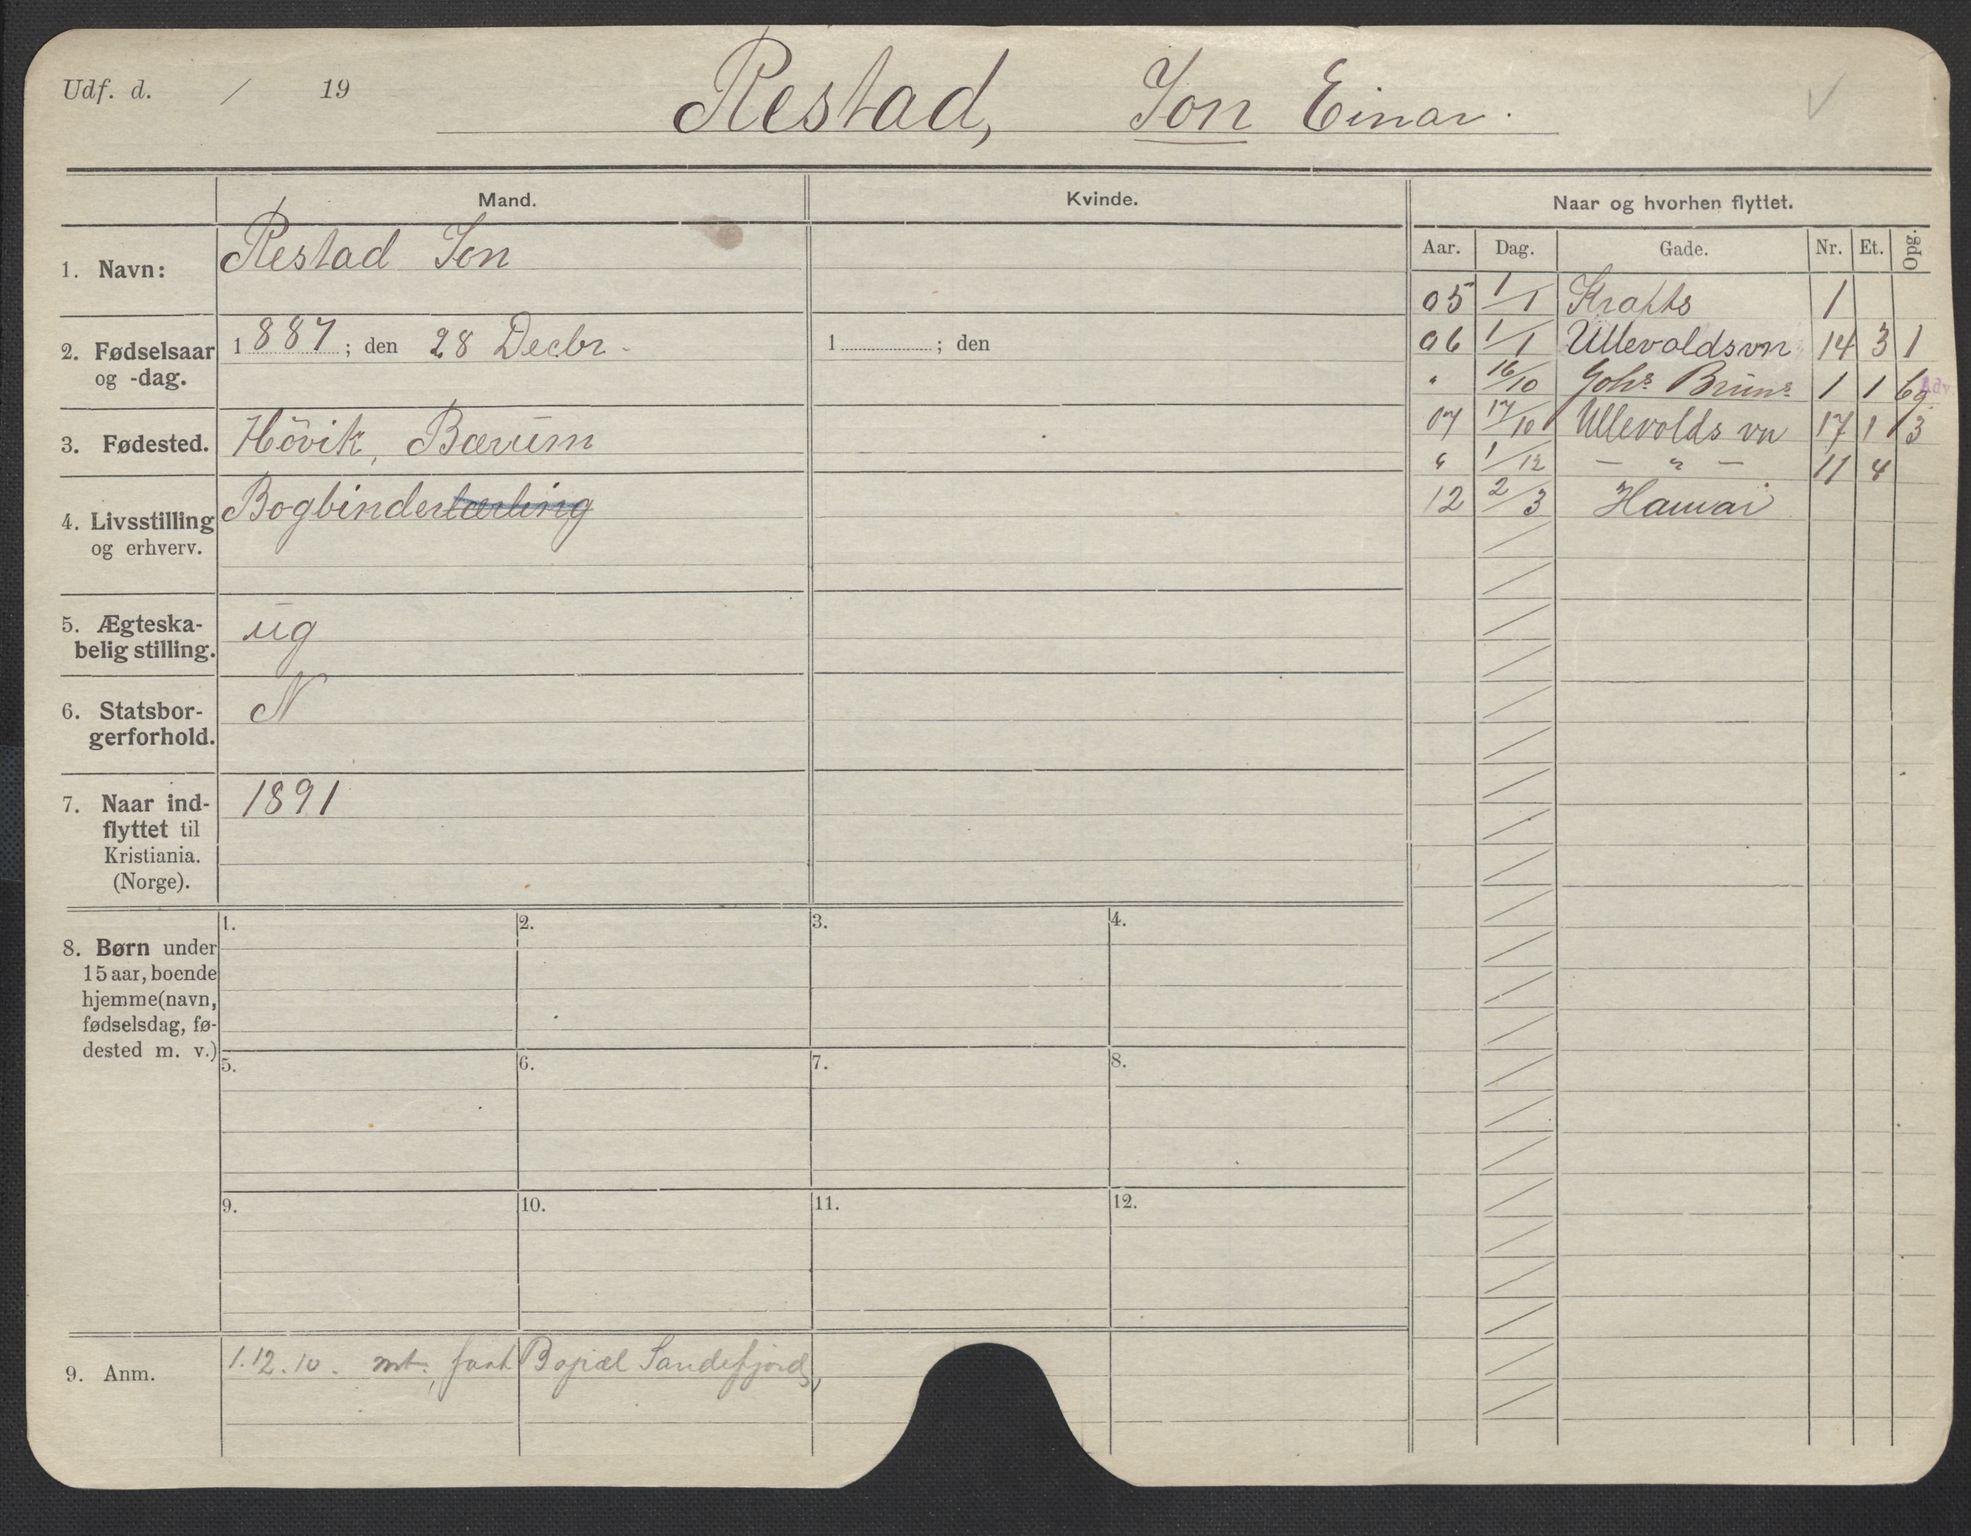 Udf. d. / 19
Restad, Jon Einar.
Mand.
Kvinde.
Naar og hvorhen flyttet.
Aar. Dag. Gade. Nr. Et. Opg.
1. Navn: Restad Jon
2. Fødselsaar og -dag. 1887; den 28 Decbr.
1 ; den
3. Fødested. Hövik, Bærum
4. Livsstilling og erhverv. Bogbinderlærling
5. Ægteska-
belig stilling. ug
6. Statsbor-
gerforhold. N
7. Naar ind-
flyttet til
Kristiania.
(Norge). 1891
05 1/1 Krafts 1
06 1/1 Ullevoldsvn 14 3 1
" 16/10 Johs Bruns 1 1 6g Adv
07 17/10 Ullevolds vn 17 1 3
" 1/12 — " — 11 4
12 2/3 Hawai
8. Børn under
15 aar, boende
hjemme (navn,
fødselsdag, fø-
dested m. v.)
1. 2. 3. 4.
5. 6. 7. 8.
9. 10. 11. 12.
9. Anm. 1.12.10. mt., Sandefjord,